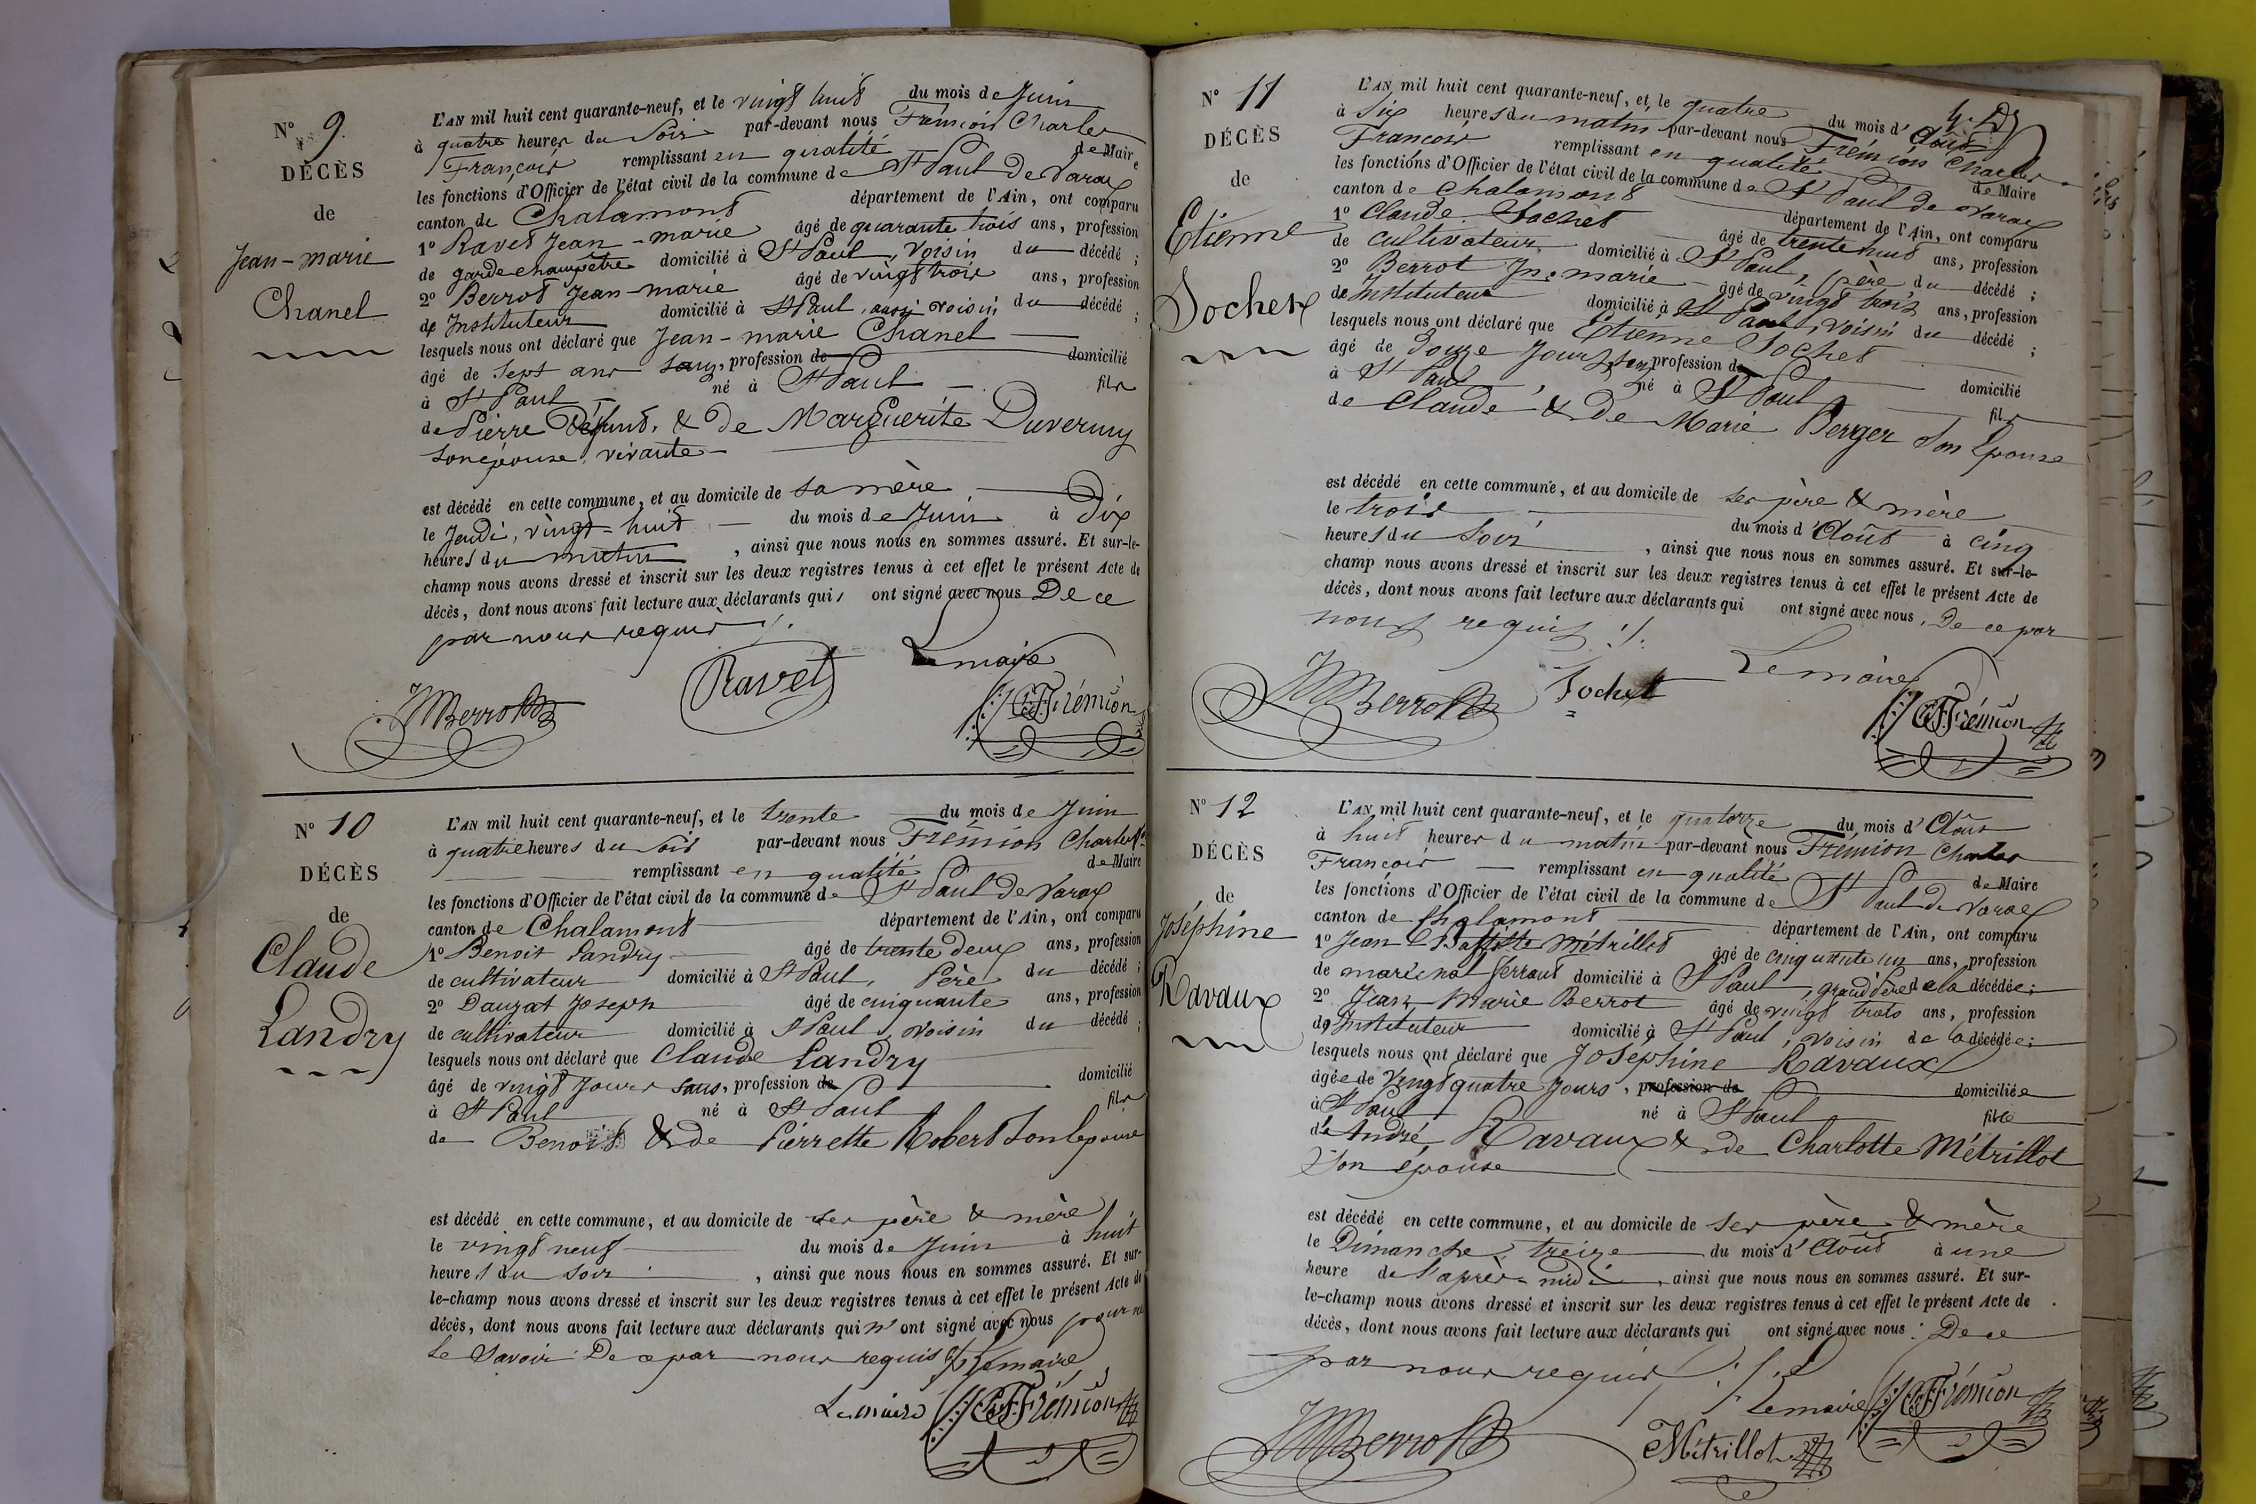 N° 9
DÉCÈS
de
Jean-marie
Chanel
L'AN mil huit cent quarante-neuf, et le vingt huit du mois de Juin
à quatre heures du Soir par-devant nous Frémion Charles
François remplissant en qualité de Maire
les fonctions d'Officier de l'état civil de la commune de St Paul de Varax
canton de Chalamont département de l'Ain, ont comparu
1° Ravet Jean-marie âgé de quarante trois ans, profession
de garde champêtre domicilié à St Paul, Voisin du décédé ;
2° Berrot Jean-marie âgé de vingt trois ans, profession
de Instituteur domicilié à St Paul, aussi voisin du décédé ;
lesquels nous ont déclaré que Jean-marie Chanel
âgé de Sept ans sans, profession de domicilié
à St Paul né à St Paul fils
de Pierre Défunt, & de Marguerite Duvernay
son épouse, vivante
est décédé en cette commune, et au domicile de sa mère
le Jeudi, vingt-huit du mois de Juin à Dix
heures du matin, ainsi que nous nous en sommes assuré. Et sur-le-
champ nous avons dressé et inscrit sur les deux registres tenus à cet effet le présent Acte de
décès, dont nous avons fait lecture aux déclarants qui, ont signé avec nous De ce
par nous requis ./.
Le maire
JMBerrot Ravet CFFrémion
N° 10
DÉCÈS
de
Claude
Landry
L'AN mil huit cent quarante-neuf, et le trente du mois de Juin
à quatre heures du Soir par-devant nous Frémion Charles
remplissant en qualité de Maire
les fonctions d'Officier de l'état civil de la commune de St Paul de Varax
canton de Chalamont département de l'Ain, ont comparu
1° Benoit Landry âgé de trente deux ans, profession
de cultivateur domicilié à St Paul, Père du décédé ;
2° Dauzat Joseph âgé de cinquante ans, profession
de cultivateur domicilié à St Paul, voisin du décédé ;
lesquels nous ont déclaré que Claude Landry
âgé de vingt Jours sans, profession de domicilié
à St Paul né à St Paul fils
de Benoit & de Pierrette Robert Son Epouse
est décédé en cette commune, et au domicile de ses père & mère
le vingt neuf du mois de Juin à huit
heures du soir, ainsi que nous nous en sommes assuré. Et sur-
le-champ nous avons dressé et inscrit sur les deux registres tenus à cet effet le présent Acte de
décès, dont nous avons fait lecture aux déclarants qui n'ont signé avec nous pour ne
le Savoir De ce par nous requis
Le maire CFFrémion
N° 11
DÉCÈS
de
Etienne
Sochet
L'AN mil huit cent quarante-neuf, et le quatre du mois d'Août
à Six heures du matin par-devant nous Frémion Charles
François remplissant en qualité de Maire
les fonctions d'Officier de l'état civil de la commune de St Paul de Varax
canton de Chalamont département de l'Ain, ont comparu
1° Claude Sochet âgé de trente huit ans, profession
de cultivateur domicilié à St Paul, père du décédé ;
2° Berrot Jn marie âgé de vingt trois ans, profession
de Instituteur domicilié à St Paul, voisin du décédé ;
lesquels nous ont déclaré que Etienne Sochet
âgé de Douze Jours, profession de domicilié
à St Paul, né à St Paul fils
de Claude & De Marie Berger Son Epouse
est décédé en cette commune, et au domicile de ses père & mère
le trois du mois d'Août à cinq
heures du Soir, ainsi que nous nous en sommes assuré. Et sur-le-
champ nous avons dressé et inscrit sur les deux registres tenus à cet effet le présent Acte de
décès, dont nous avons fait lecture aux déclarants qui ont signé avec nous, De ce par
nous requis ./.
Le maire
JMBerrot Sochet CFFrémion
N° 12
DÉCÈS
de
Joséphine
Ravaux
L'AN mil huit cent quarante-neuf, et le quatorze du mois d'Août
à huit heures du matin par-devant nous Frémion Charles
François remplissant en qualité de Maire
les fonctions d'Officier de l'état civil de la commune de St Paul de Varax
canton de Chalamont département de l'Ain, ont comparu
1° Jean Baptiste Métrillot âgé de cinquante un ans, profession
de maréchal ferrant domicilié à St Paul, grand père de la décédée ;
2° Jean Marie Berrot âgé de vingt trois ans, profession
de Instituteur domicilié à St Paul, voisin de la décédée ;
lesquels nous ont déclaré que Joséphine Ravaux
âgée de Vingt quatre Jours, profession de domiciliée
à St Paul né à St Paul fille
de André Ravaux & de Charlotte Métrillot
Son épouse
est décédé en cette commune, et au domicile de ses père & mère
le Dimanche treize du mois d'Août à une
heure de l'après-midi, ainsi que nous nous en sommes assuré. Et sur-
le-champ nous avons dressé et inscrit sur les deux registres tenus à cet effet le présent Acte de
décès, dont nous avons fait lecture aux déclarants qui ont signé avec nous : De ce
par nous requis ./.
Le maire CFFrémion
JMBerrot Métrillot